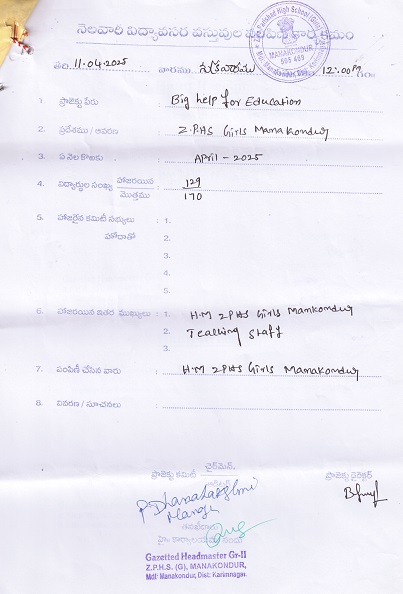 నెలవారి విద్యావసర వస్తువుల పంపిణీ కార్యక్రమం
తేది. 11.04.2025 వారము శుక్రవారము 12:00 PM గం.
Z.P. Girls (Girls)
MANAKONDUR
505 469
1. ప్రాజెక్టు పేరు : Big help for Education
2. ప్రదేశము / ఆవరణ : Z.P.HS Girls Manakondur
3. ఏ నెల కొరకు : April - 2025
4. విద్యార్థుల సంఖ్య హాజరయిన : 129
మొత్తము 170
5. హాజరైన కమిటీ సభ్యులు : 1.
హోదాతో 2.
3.
4.
5.
6. హాజరయిన ఇతర ముఖ్యులు : 1. H.M ZPHS Girls Mankondur
2. Teaching staff
3.
7. పంపిణీ చేసిన వారు : H.M ZPHS Girls Manakondur
8. వివరణ / సూచనలు :
చైర్మెన్,
ప్రాజెక్టు కమిటీ
ప్రాజెక్టు డైరెక్టర్
P Dhanalakshmi
Gazetted Headmaster Gr-II
Z.P.H.S. (G), MANAKONDUR,
Mdl: Manakondur, Dist: Karimnagar.